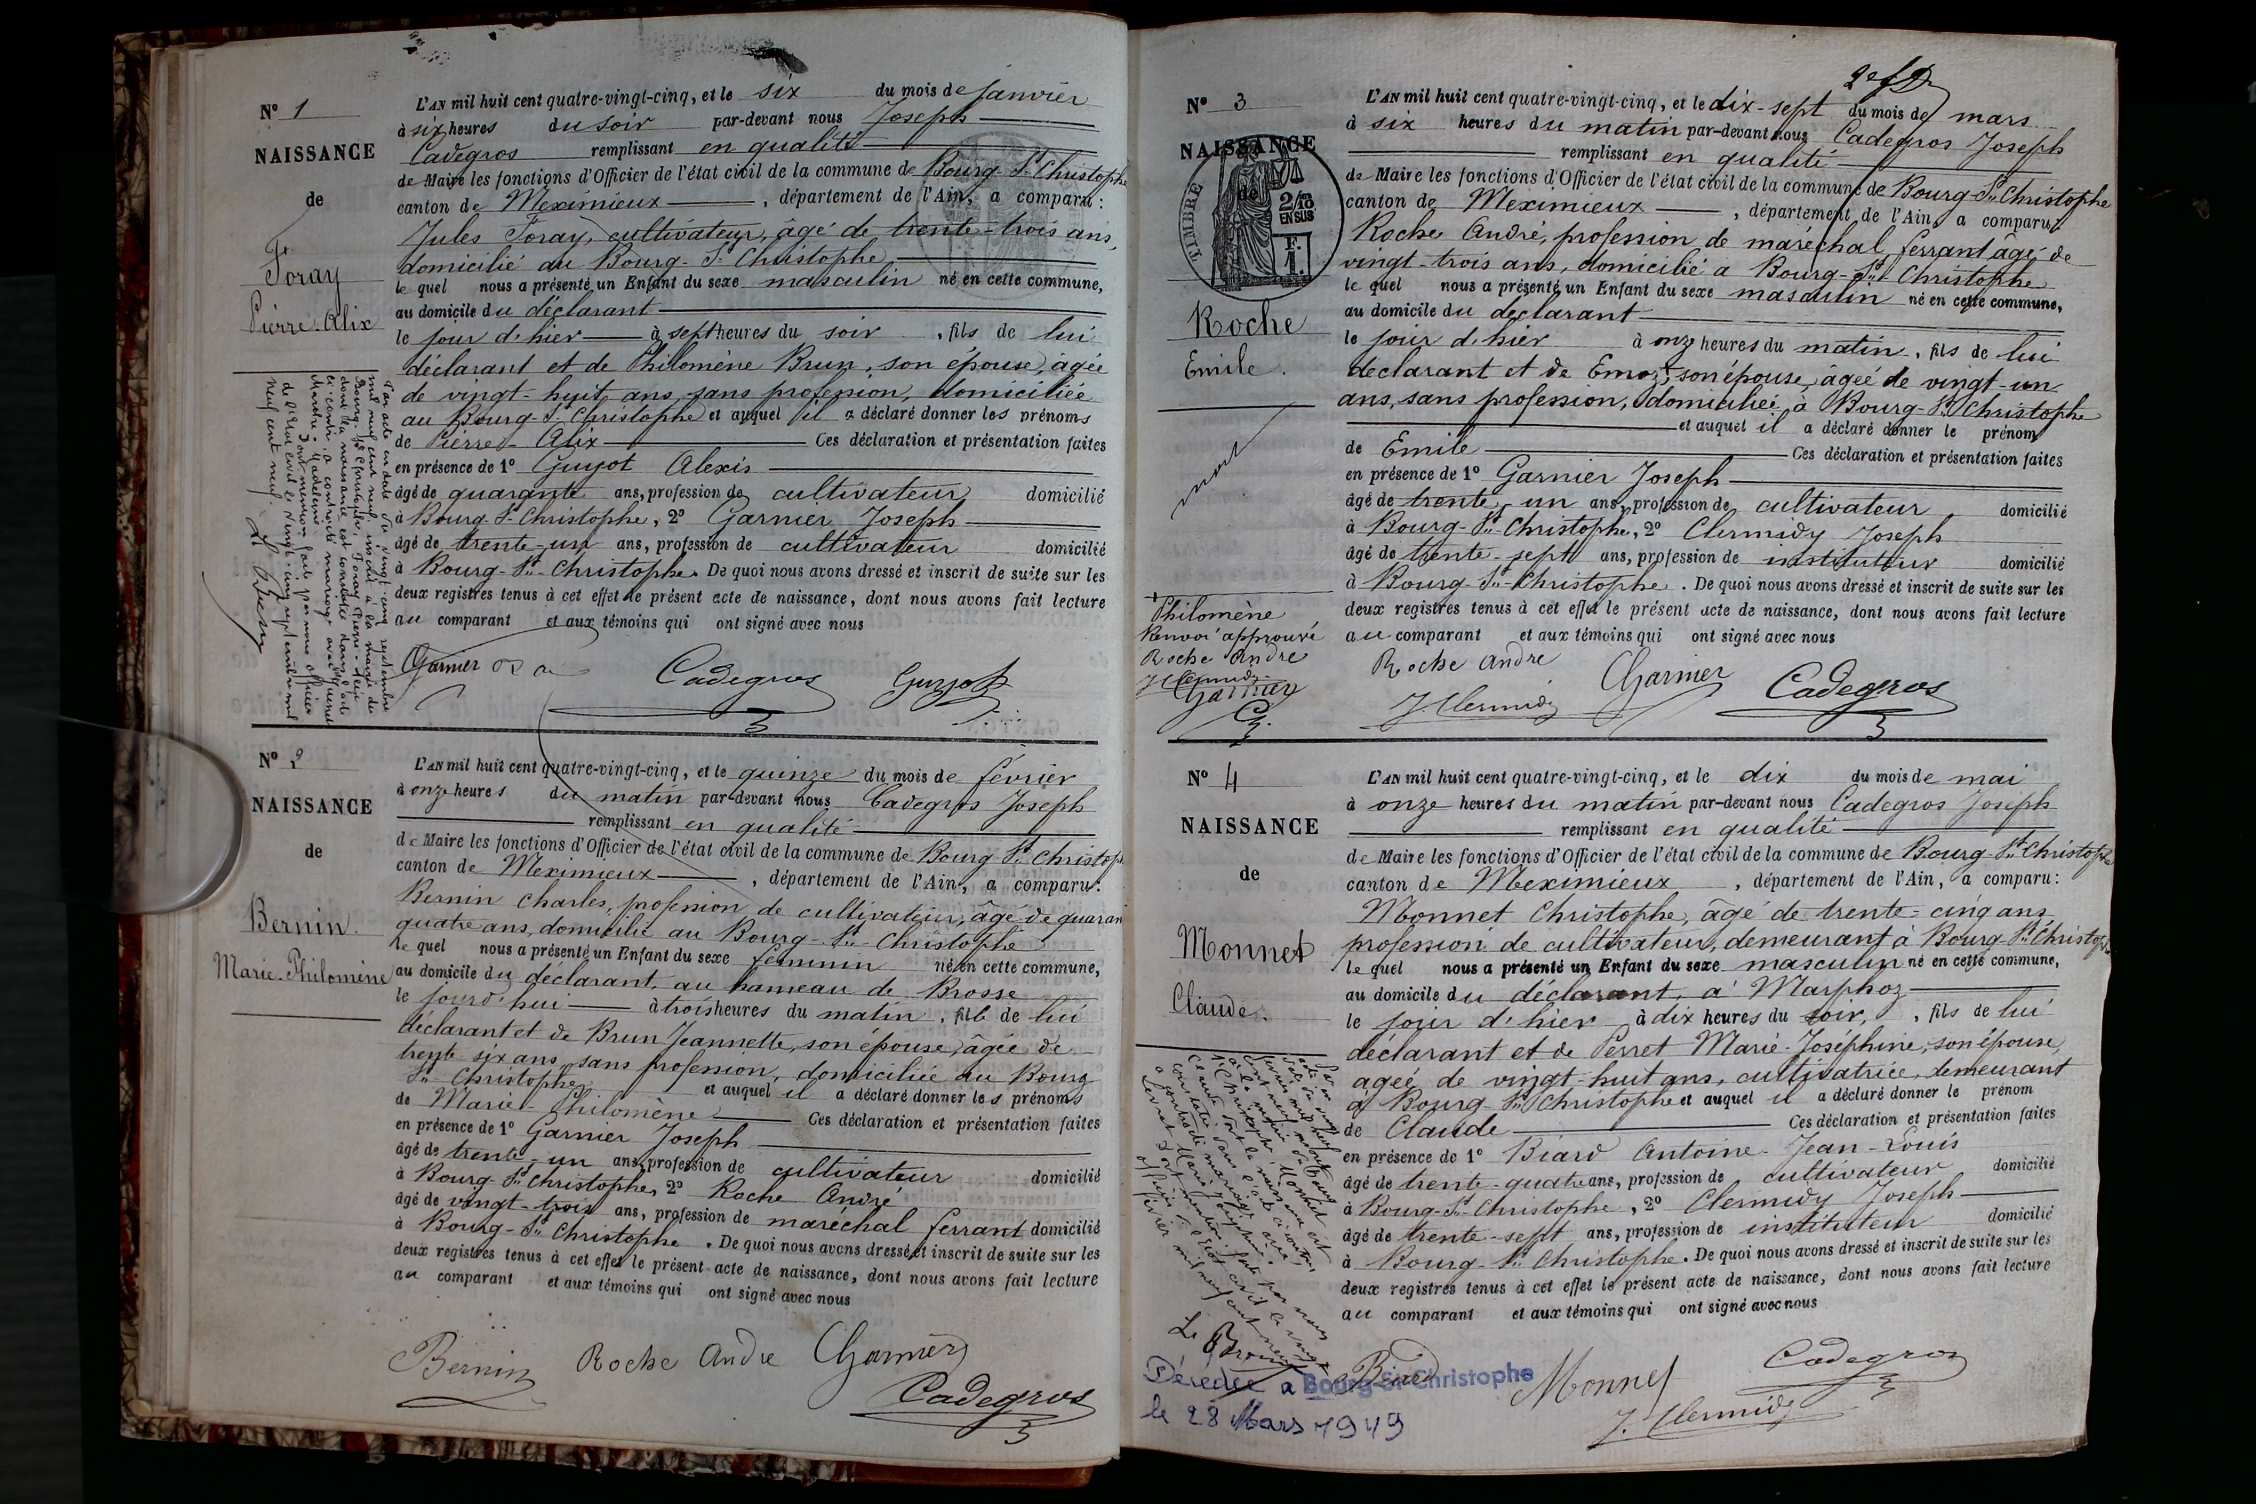 N° 1
NAISSANCE
de
Foray
Pierre-Alix
L'AN mil huit cent quatre-vingt-cinq, et le six du mois de janvier
à six heures du soir par-devant nous Joseph
Cadegros remplissant en qualité
de Maire les fonctions d'Officier de l'état civil de la commune de Bourg-St-Christophe
canton de Meximieux, département de l'Ain, a comparu :
Jules Foray, cultivateur, âgé de trente-trois ans,
domicilié au Bourg-St-Christophe,
le quel nous a présenté un Enfant du sexe masculin né en cette commune,
au domicile du déclarant
le jour d'hier à sept heures du soir, fils de lui
déclarant et de Philomène Brun, son épouse, âgée
de vingt-huit ans, sans profession, domiciliée
au Bourg-St-Christophe et auquel il a déclaré donner les prénoms
de Pierre-Alix Ces déclaration et présentation faites
en présence de 1° Guyot Alexis
âgé de quarante ans, profession de cultivateur domicilié
à Bourg-St-Christophe, 2° Garnier Joseph
âgé de trente-un ans, profession de cultivateur domicilié
à Bourg-St-Christophe. De quoi nous avons dressé et inscrit de suite sur les
deux registres tenus à cet effet le présent acte de naissance, dont nous avons fait lecture
au comparant et aux témoins qui ont signé avec nous
Garnier Cadegros Guyot
Par acte en date du vingt-cinq septembre
mil neuf cent neuf, inscrit à la mairie de
Bourg-St-Christophe, Foray Pierre-Alix
dont la naissance est constatée dans l'acte
ci-contre a contracté mariage avec
Dont mention faite par nous officier
de l'Etat civil le vingt-cinq septembre mil
neuf cent neuf.
N° 2
NAISSANCE
de
Bernin
Marie-Philomène
L'AN mil huit cent quatre-vingt-cinq, et le quinze du mois de février
à onze heures du matin par-devant nous Cadegros Joseph
remplissant en qualité
de Maire les fonctions d'Officier de l'état civil de la commune de Bourg St Christoph
canton de Meximieux, département de l'Ain, a comparu :
Bernin Charles, profession de cultivateur, âgé de quaran
quatre ans, domicilié au Bourg-St-Christophe
le quel nous a présenté un Enfant du sexe féminin né en cette commune,
au domicile du déclarant, au hameau de Brosse
le jourd'hui à trois heures du matin, fille de lui
déclarant et de Brun Jeannette, son épouse, âgée de
trente six ans, sans profession, domiciliée au Bourg
St-Christophe et auquel il a déclaré donner les prénoms
de Marie-Philomène Ces déclaration et présentation faites
en présence de 1° Garnier Joseph
âgé de trente-un ans, profession de cultivateur domicilié
à Bourg-St-Christophe, 2° Roche André
âgé de vingt-trois ans, profession de maréchal ferrant domicilié
à Bourg-St-Christophe. De quoi nous avons dressé et inscrit de suite sur les
deux registres tenus à cet effet le présent acte de naissance, dont nous avons fait lecture
au comparant et aux témoins qui ont signé avec nous
Bernin Roche André Garnier
Cadegros
N° 3
NAISSANCE
de
TIMBRE
2/10
EN SUS
F.
1.
Roche
Emile.
mort
L'AN mil huit cent quatre-vingt-cinq, et le dix-sept du mois de mars
à six heures du matin par-devant nous Cadegros Joseph
remplissant en qualité
de Maire les fonctions d'Officier de l'état civil de la commune de Bourg-St-Christophe
canton de Meximieux, département de l'Ain, a comparu
Roche André, profession de maréchal ferrant âgé de
vingt-trois ans, domicilié à Bourg-St-Christophe
le quel nous a présenté un Enfant du sexe masculin né en cette commune,
au domicile du déclarant
le jour d'hier à onze heures du matin, fils de lui
déclarant et de Emoz, son épouse, âgée de vingt-un
ans, sans profession, domiciliée à Bourg-St-Christophe
et auquel il a déclaré donner le prénom
de Emile Ces déclaration et présentation faites
en présence de 1° Garnier Joseph
âgé de trente-un ans, profession de cultivateur domicilié
à Bourg-St-Christophe, 2° Clermidy Joseph
âgé de trente-sept ans, profession de instituteur domicilié
à Bourg-St-Christophe. De quoi nous avons dressé et inscrit de suite sur les
deux registres tenus à cet effet le présent acte de naissance, dont nous avons fait lecture
au comparant et aux témoins qui ont signé avec nous
Philomène
Renvoi approuvé
Roche André
J Clermidy
Garnier
Roche André Garnier
J. Clermidy Cadegros
N° 4
NAISSANCE
de
Monnet
Claude.
L'AN mil huit cent quatre-vingt-cinq, et le dix du mois de mai
à onze heures du matin par-devant nous Cadegros Joseph
remplissant en qualité
de Maire les fonctions d'Officier de l'état civil de la commune de Bourg-St-Christophe
canton de Meximieux, département de l'Ain, a comparu :
Monnet Christophe, âgé de trente-cinq ans,
profession de cultivateur, demeurant à Bourg-St-Christophe
le quel nous a présenté un Enfant du sexe masculin né en cette commune,
au domicile du déclarant, à Marphoz
le jour d'hier à dix heures du soir, fils de lui
déclarant et de Perret Marie-Joséphine, son épouse,
âgée de vingt-huit ans, cultivatrice, demeurant
à Bourg-St-Christophe et auquel il a déclaré donner le prénom
de Claude Ces déclaration et présentation faites
en présence de 1° Biard Antoine-Jean-Louis
âgé de trente-quatre ans, profession de cultivateur domicilié
à Bourg-St-Christophe, 2° Clermidy Joseph
âgé de trente-sept ans, profession de instituteur domicilié
à Bourg-St-Christophe. De quoi nous avons dressé et inscrit de suite sur les
deux registres tenus à cet effet le présent acte de naissance, dont nous avons fait lecture
au comparant et aux témoins qui ont signé avec nous
Biard Monnet Cadegros
J. Clermidy
Décédée à Bourg-St-Christophe
le 28 Mars 1949